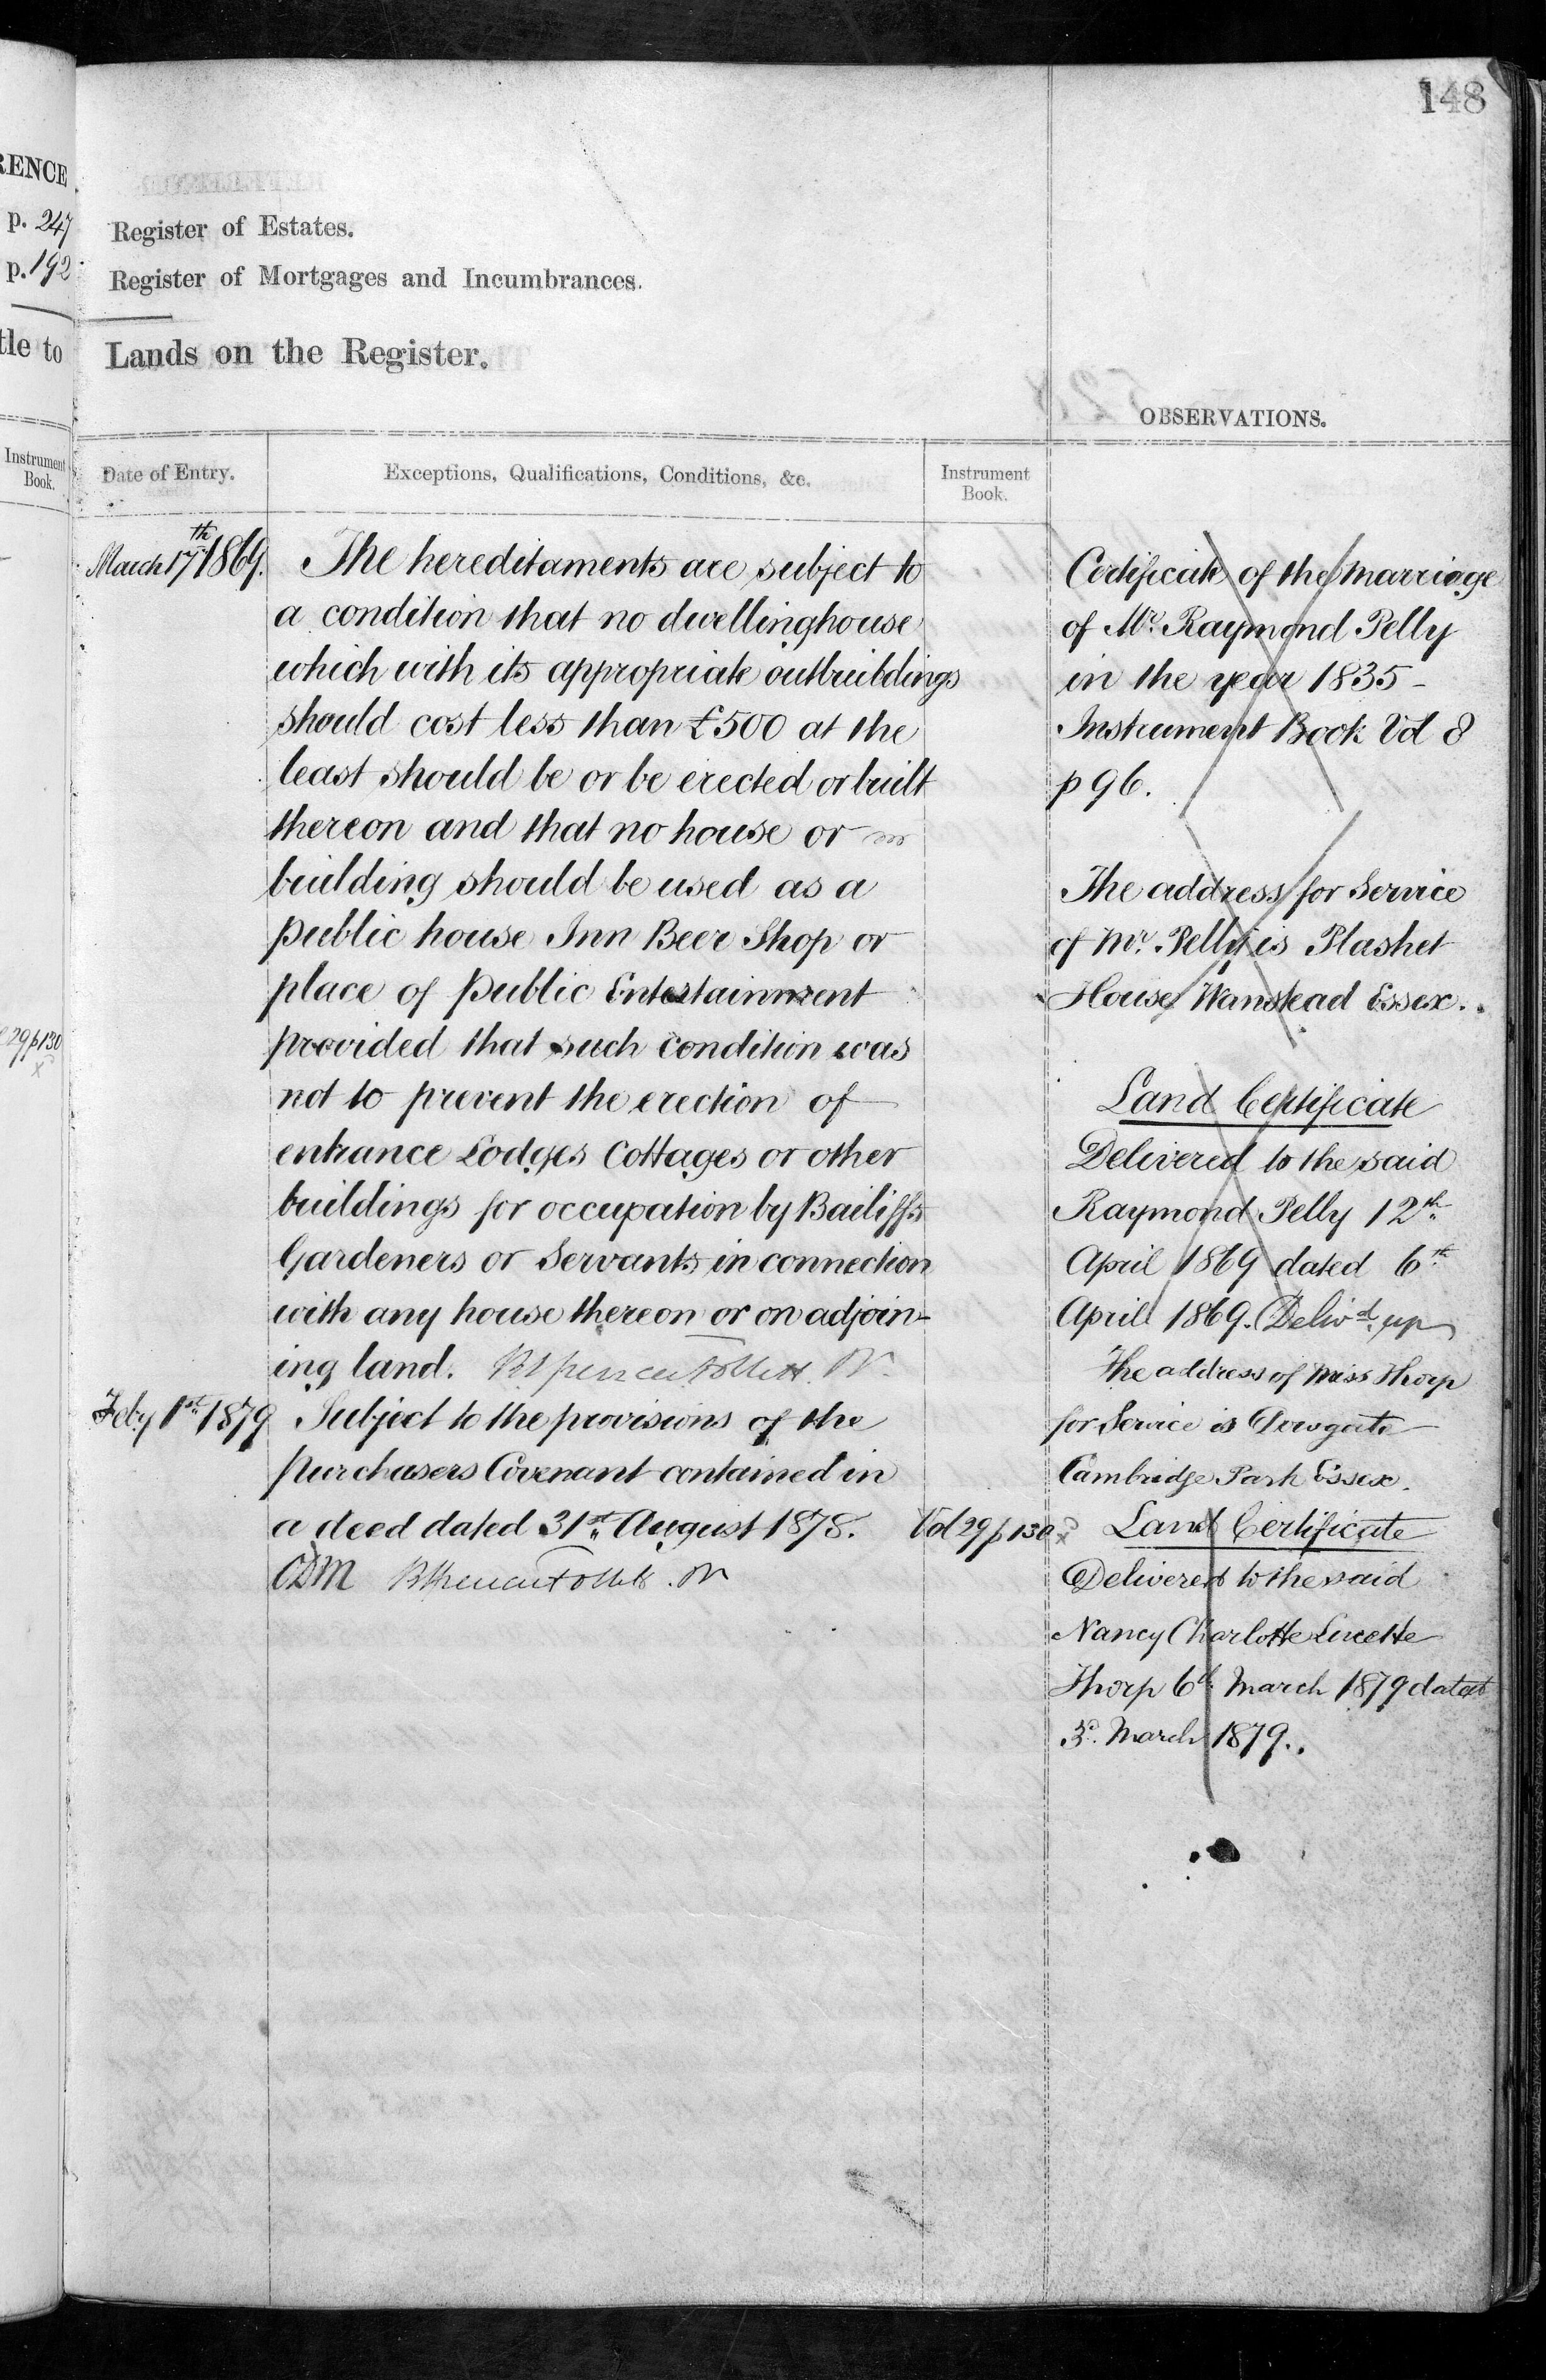 148
RENCE
p. 247
p. 192
tle to
Instrument
Book.
29 p 130
Register of Estates.
Register of Mortgages and Incumbrances.
Lands on the Register.
OBSERVATIONS.
Date of Entry.
Exceptions, Qualifications, Conditions, &c.
Instrument
Book.
March 17th 1869.
The hereditaments are subject to
a condition that no dwellinghouse
which with its appropriate outbuildings
should cost less than £500 at the
least should be or be erected or built
thereon and that no house or
building should be used as a
public house Inn Beer Shop or
place of public Entertainment
provided that such condition was
not to prevent the erection of
entrance Lodges Cottages or other
buildings for occupation by Bailiffs
Gardeners or Servants in connection
with any house thereon or on adjoin-
ing land.
Feby 1st 1879
Subject to the provisions of the
purchasers Covenant contained in
a deed dated 31st August 1878.
Vol 29 p 130
Certificate of the Marriage
of Mr. Raymond Pelly
in the year 1835 -
Instrument Book Vol 8
p 96.
The address for Service
of Mr. Pelly is Plashet
House Wanstead Essex.
Land Certificate
Delivered to the said
Raymond Pelly 12th
April 1869 dated 6th
April 1869. Delivd. up
The address of Miss Thorp
for Service is Dowgate
Cambridge Park Essex.
Land Certificate
Delivered to the said
Nancy Charlotte Lucette
Thorp 6th March 1879 dated
3d. March 1879.